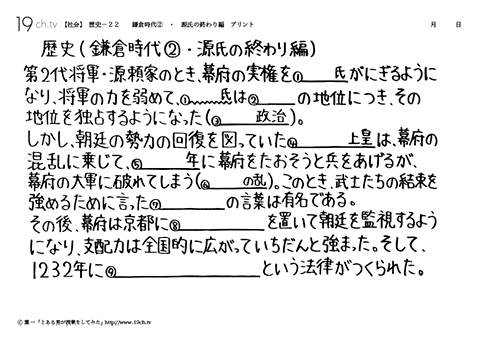 19ch.tv 【社会】 歴史－22 鎌倉時代② ・ 源氏の終わり編 プリント 月 日
歴史(鎌倉時代②・源氏の終わり編)
第2代将軍・源頼家のとき、幕府の実権を① 氏がにぎるように
なり、将軍の力を弱めて、①氏は② の地位につき、その
地位を独占するようになった(③ 政治)。
しかし、朝廷の勢力の回復を図っていた④ 上皇は、幕府の
混乱に乗じて、⑤ 年に幕府をたおそうと兵をあげるが、
幕府の大軍に破れてしまう(⑥ の乱)。このとき、武士たちの結束を
強めるために言った⑦ の言葉は有名である。
その後、幕府は京都に⑧ を置いて朝廷を監視するよう
になり、支配力は全国的に広がっていちだんと強まった。そして、
1232年に⑨ という法律がつくられた。
©葉一「とある男が授業をしてみた」http://www.19ch.tv